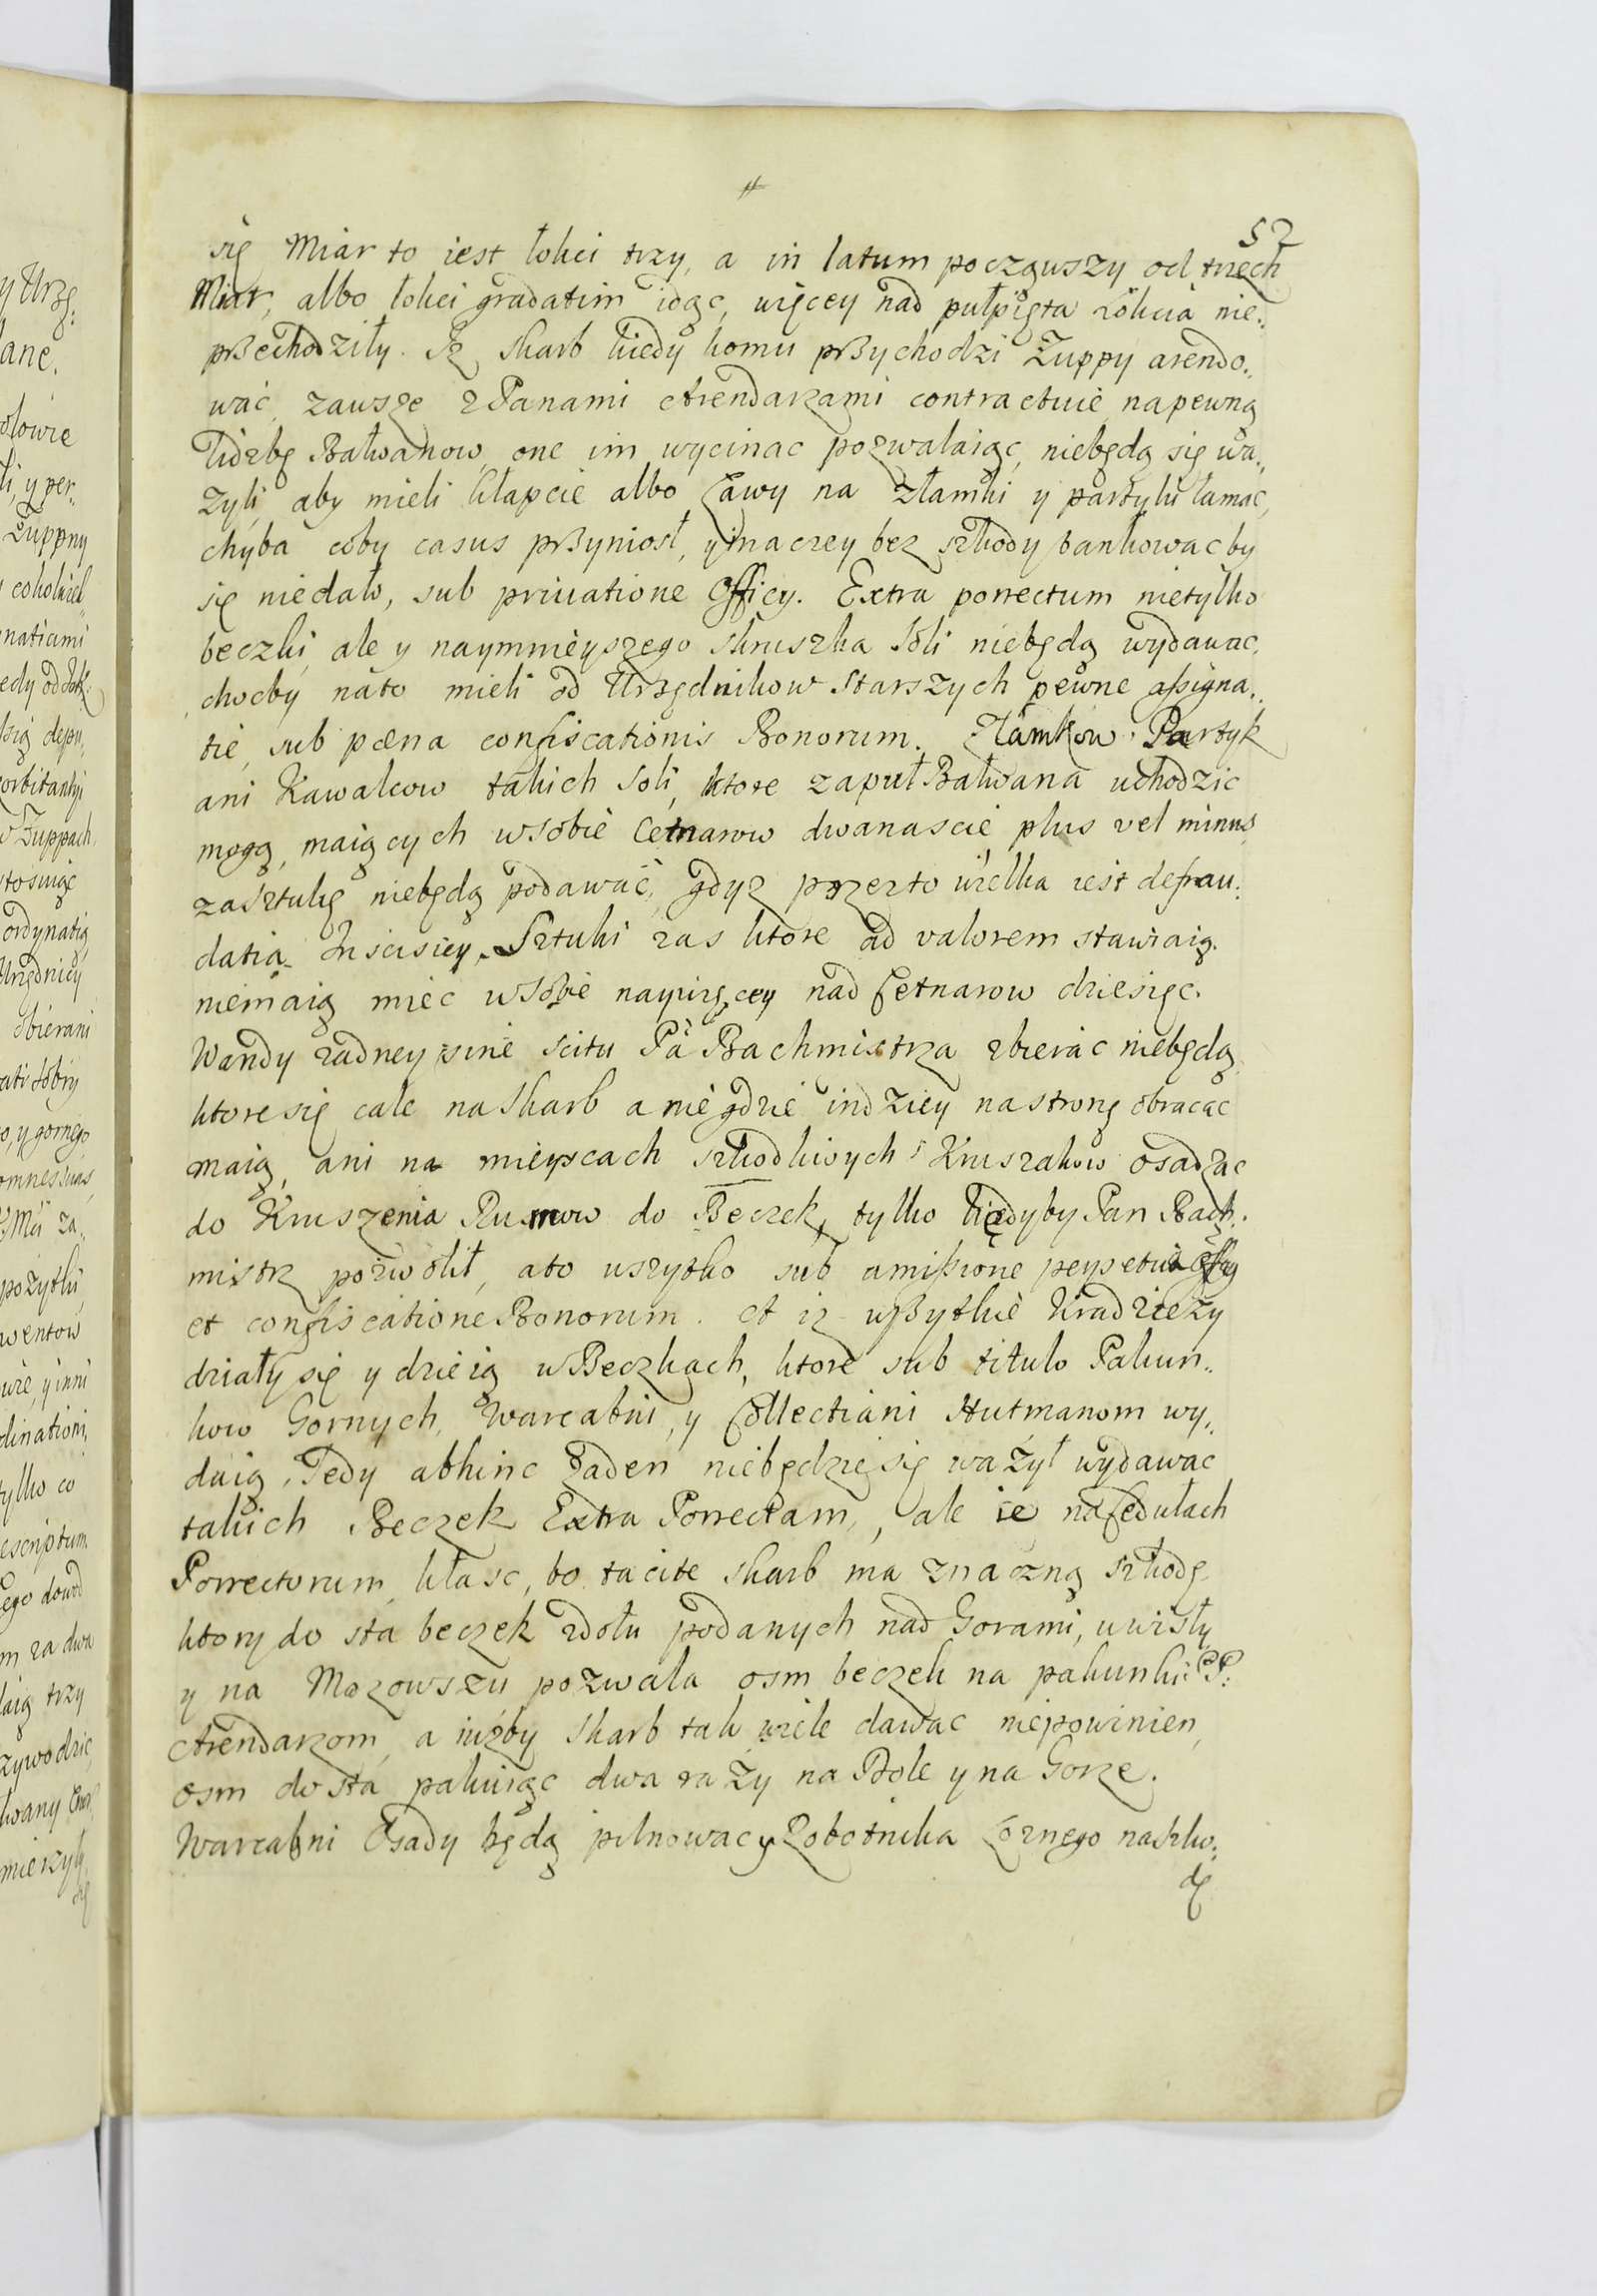 52
się Miar to iest łokci trzy, a in latum począwszy od trzech
Miar, albo łokci gradatim idąc, więcey nad pułpięta Łokcia nie„
przechodziły. Iż skarb kiedy komu przychodzi Żuppy arendo„
wać, zawsze z Panami Arendarzami contractuie na pewną
liczbę Bałwanow, one im wycinac pozwalaiąc, niebędą się wa„
zyli, aby mieli kłapcie albo Ławy na złamki y partyki łamac,
chyba coby casus przyniosł, y inaczey bez szkody bankowac by
się niedało, sub privatione Officy. Extra porrectum nietylko
beczki, ale y naymnieyszego skruszka Soli niebędą wydawac,
chocby nato mieli od Urzędnikow Starszych pewne assigna„
tie, sub pœna confiscationis Bonorum. Złamkow Partyk
ani Kawalcow takich Soli, ktore zapuł Bałwana uchodzic
mogą, maiących wsobie Cetnarow dwanascie plus vel minus
zasztukę niebędą podawać, gdyz przezto wielka iest defrau„
datia Inscisiey. Sztuki zas ktore ad valorem stawiaią.
niemaią miec wsobie naywięcey nad Cetnarow dziesięc.
Wandy zadney sine scitu Pa Bachmistrza zbierac niebędą
ktore się cale na Skarb a niegdzie indziey na stronę obracac
maią, ani na mieyscach szkodliwych Kruszakow osadzac
do Kruszenia Rumow do Beczek, tylko kiedyby Pan Bach„
mistrz pozwolił, ato wszytko sub amissione perpetua Officy
et confiscatione Bonorum. A iz wszytkie Kradzieży
działy się y dzieią w Beczkach, ktore sub titulo Pakun„
kow Gornych, Warcabni, y Collectiani Hutmanom wy„
daią, Tedy abhinc żaden niebędzie się ważył wydawac
takich Beczek Extra Porrectam, ale ie na Cedułach
Porrectorum kłasc, bo tacite skarb ma znaczną szkodę
ktory do sta beczek zdołu podanych nad Gorami, u wisły
y na Mazowszu pozwala osm beczek na pakunki PP:
Arendarzom, a iużby Skarb tak wiele dawac niepowinien,
osm do sta pakuiąc dwa raży na Dole y na Gorze.
Warcabni Osady będą pilnowac y Robotnika Gornego naszko„
dę